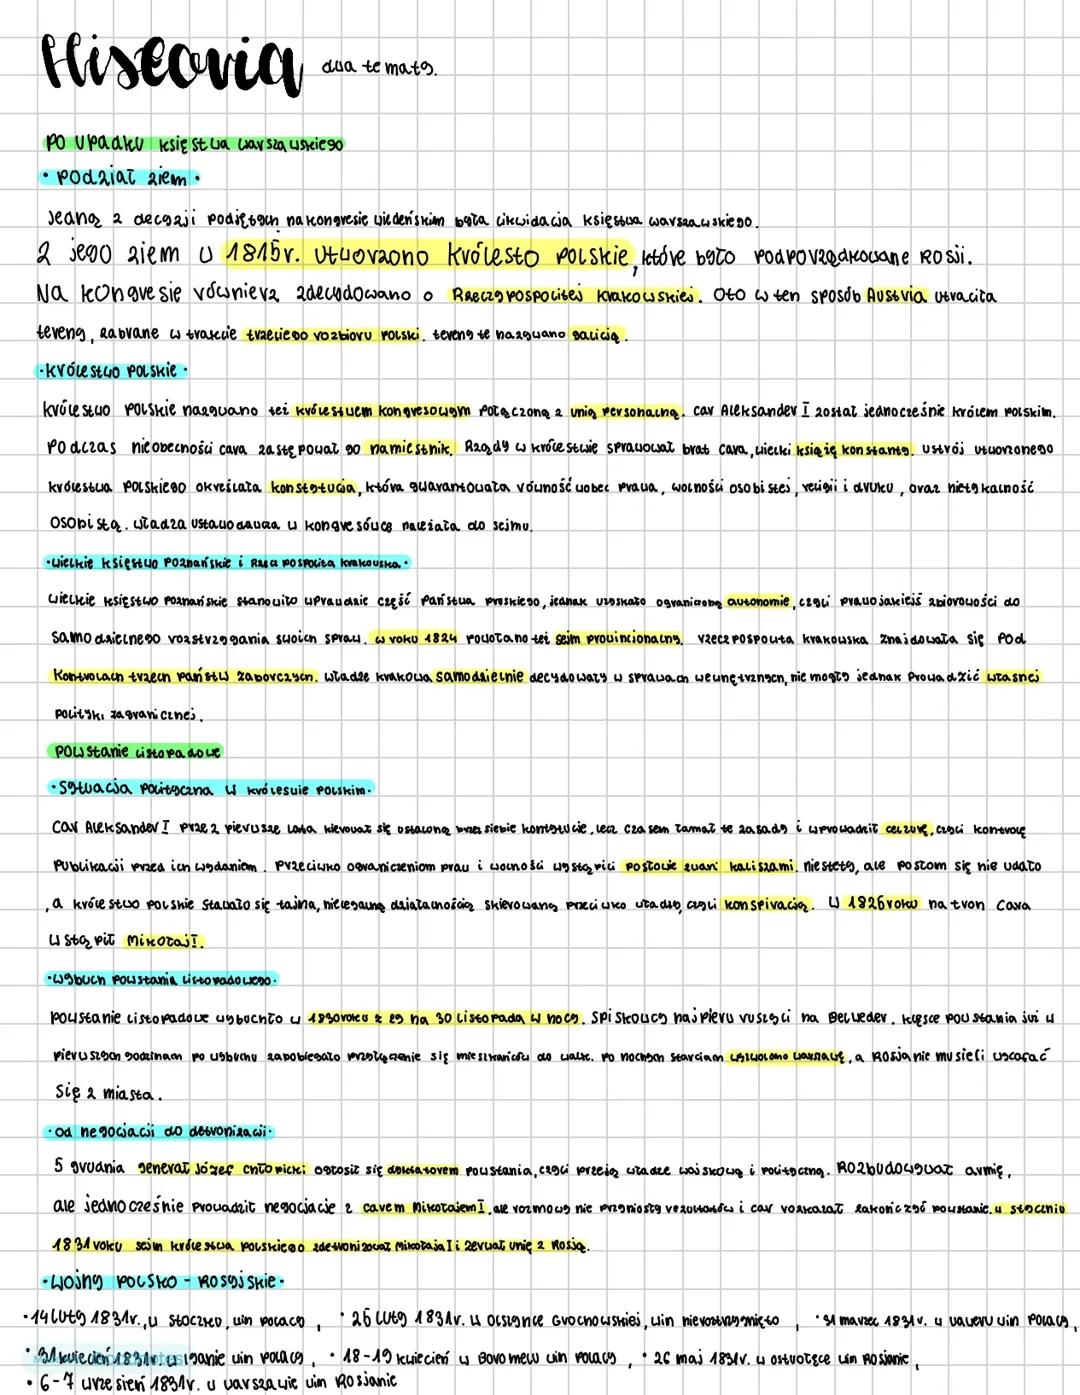 Historia dwa tematy.
Po upadku księstwa warszawskiego
• Podział ziem •
Jedną z decyzji podjętych na kongresie wiedeńskim była likwidacja księstwa warszawskiego.
Z jego ziem w 1815r. utworzono Królesto Polskie, które było podporządkowane Rosji.
Na kongresie również zdecydowano o Rzeczypospolitej Krakowskiej. Oto w ten sposób Austria utraciła
tereny, zabrane w trakcie trzeciego rozbioru Polski. tereny te nazywano galicją.
•Królestwo Polskie •
Królestwo Polskie nazywano też królestwem kongresowym połączoną z unią personalną. car Aleksander I został jednocześnie królem polskim.
Podczas nieobecności cara zastępował go namiestnik. Rządy w królestwie sprawował brat cara, wielki książę konstanty. ustrój utworzonego
królestwa Polskiego określała konstytucja, która gwarantowała równość wobec prawa, wolności osobistej, religii i druku, oraz nietykalność
osobistą. władza ustawodawcza w kongresówce należała do sejmu.
•wielkie księstwo Poznańskie i Rzecz pospolita krakowska •
wielkie księstwo poznańskie stanowiło wprawdzie część państwa pruskiego, jednak uzyskało ograniczoną autonomie, czyli prawo jakiejś zbiorowości do
samodzielnego rozstrzygania swoich spraw. w roku 1824 powołano też sejm prowincjonalny. rzeczpospolita krakowska znajdowała się pod
Kontrolach trzech państw zaborczych. władze krakowa samodzielnie decydowały w sprawach wewnętrznych, nie mogły jednak prowadzić własnej
polityki zagranicznej.
Powstanie listopadowe
•Sytuacja polityczna w króleswie polskim•
Car Aleksander I przez pierwsze lata kierował się ustaloną przez siebie konstytucie, lecz czasem łamał te zasady i wprowadził cenzurę, czyli kontrolę
publikacji przed ich wydaniem. Przeciwko ograniczeniom praw i wolności wystąpili posłowie zwani kaliszami. niestety, ale posłom się nie udało
, a królestwo polskie stawało się tajną, nielegalną działalnością skierowaną przeciwko władzy, czyli konspiracją. W 1826 roku na tron cara
wstąpił Mikołaj I.
•wybuch powstania listopadowego•
powstanie listopadowe wybuchło w 1830roku z 29 na 30 listopada w nocy. Spiskowcy najpierw ruszyli na Belweder. klęsce powstania już w
pierwszych godzinam po wybuchu zapobiegało przyłączenie się mieszkańców do walk. po nocnych starciam wyzwolono warszawę, a Rosjanie musieli wycofać
się z miasta.
•od negocjacji do detronizacji•
5 grudnia generał Józef Chłopicki ogłosił się dyktatorem powstania, czyli przejął władze wojskową i polityczną. Rozbudowywał armię,
ale jednocześnie prowadził negocjacje z carem Mikołajem I, ale rozmowy nie przyniosły rezultatów i car rozkazał zakończyć powstanie. w styczniu
1831 roku sejm królestwa polskiego zdetronizował Mikołaja I i zerwał unię z Rosją.
•Wojny Polsko - Rosyjskie•
•14 luty 1831r., w stoczku, win polacy, • 25 luty 1831r. w olszynce Grochowskiej, win nierozstrzygnięto, • 31 marzec 1831r. w waweru win Polacy,
• 31 kwiecień 1831r. w iganie win polacy, • 18-19 kwiecień w Boromelu win Polacy, • 26 maj 1831r. w ostrołęce win Rosjanie,
• 6-7 wrzesień 1831r. w warszawie win Rosjanie